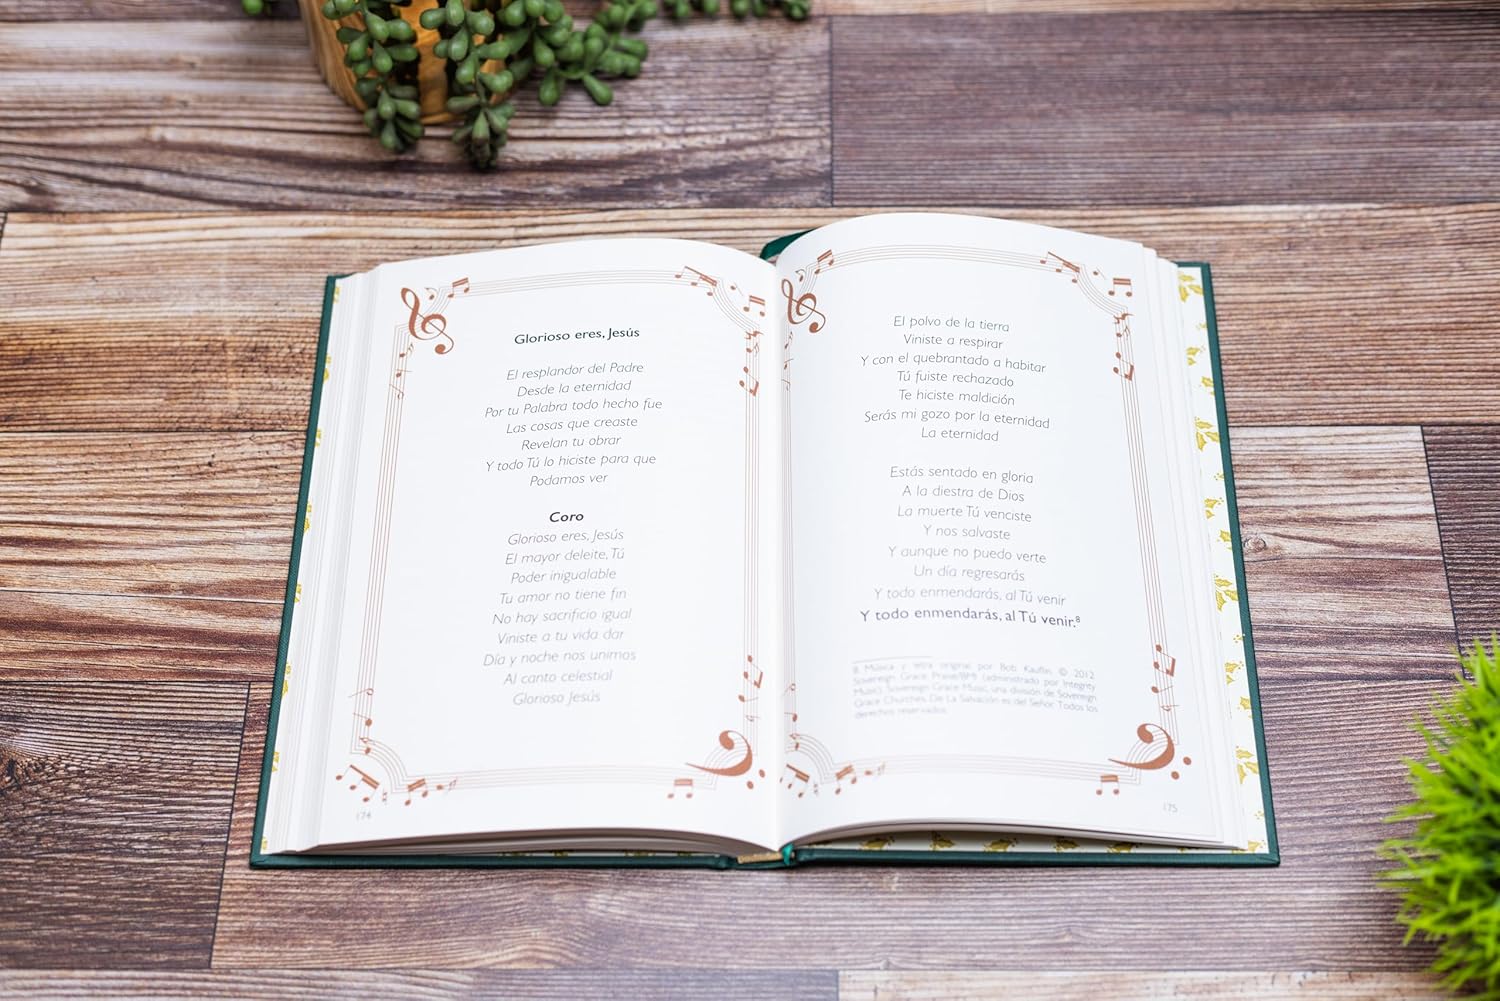 Glorioso eres, Jesús
El resplandor del Padre
Desde la eternidad
Por tu Palabra todo hecho fue
Las cosas que creaste
Revelan tu obrar
Y todo Tú lo hiciste para que
Podamos ver
Coro
Glorioso eres, Jesús
El mayor deleite, Tú
Poder inigualable
Tu amor no tiene fin
No hay sacrificio igual
Viniste a tu vida dar
Día y noche nos unimos
Al canto celestial
Glorioso Jesús
174
El polvo de la tierra
Viniste a respirar
Y con el quebrantado a habitar
Tú fuiste rechazado
Te hiciste maldición
Serás mi gozo por la eternidad
La eternidad
Estás sentado en gloria
A la diestra de Dios
La muerte Tú venciste
Y nos salvaste
Y aunque no puedo verte
Un día regresarás
Y todo enmendarás, al Tú venir
Y todo enmendarás, al Tú venir.⁸
8 Música y letra original por Bob Kauflin © 2012
Sovereign Grace Praise/BMI (administrado por Integrity
Music). Sovereign Grace Music, una división de Sovereign
Grace Churches. De La Salvación es del Señor. Todos los
derechos reservados.
175